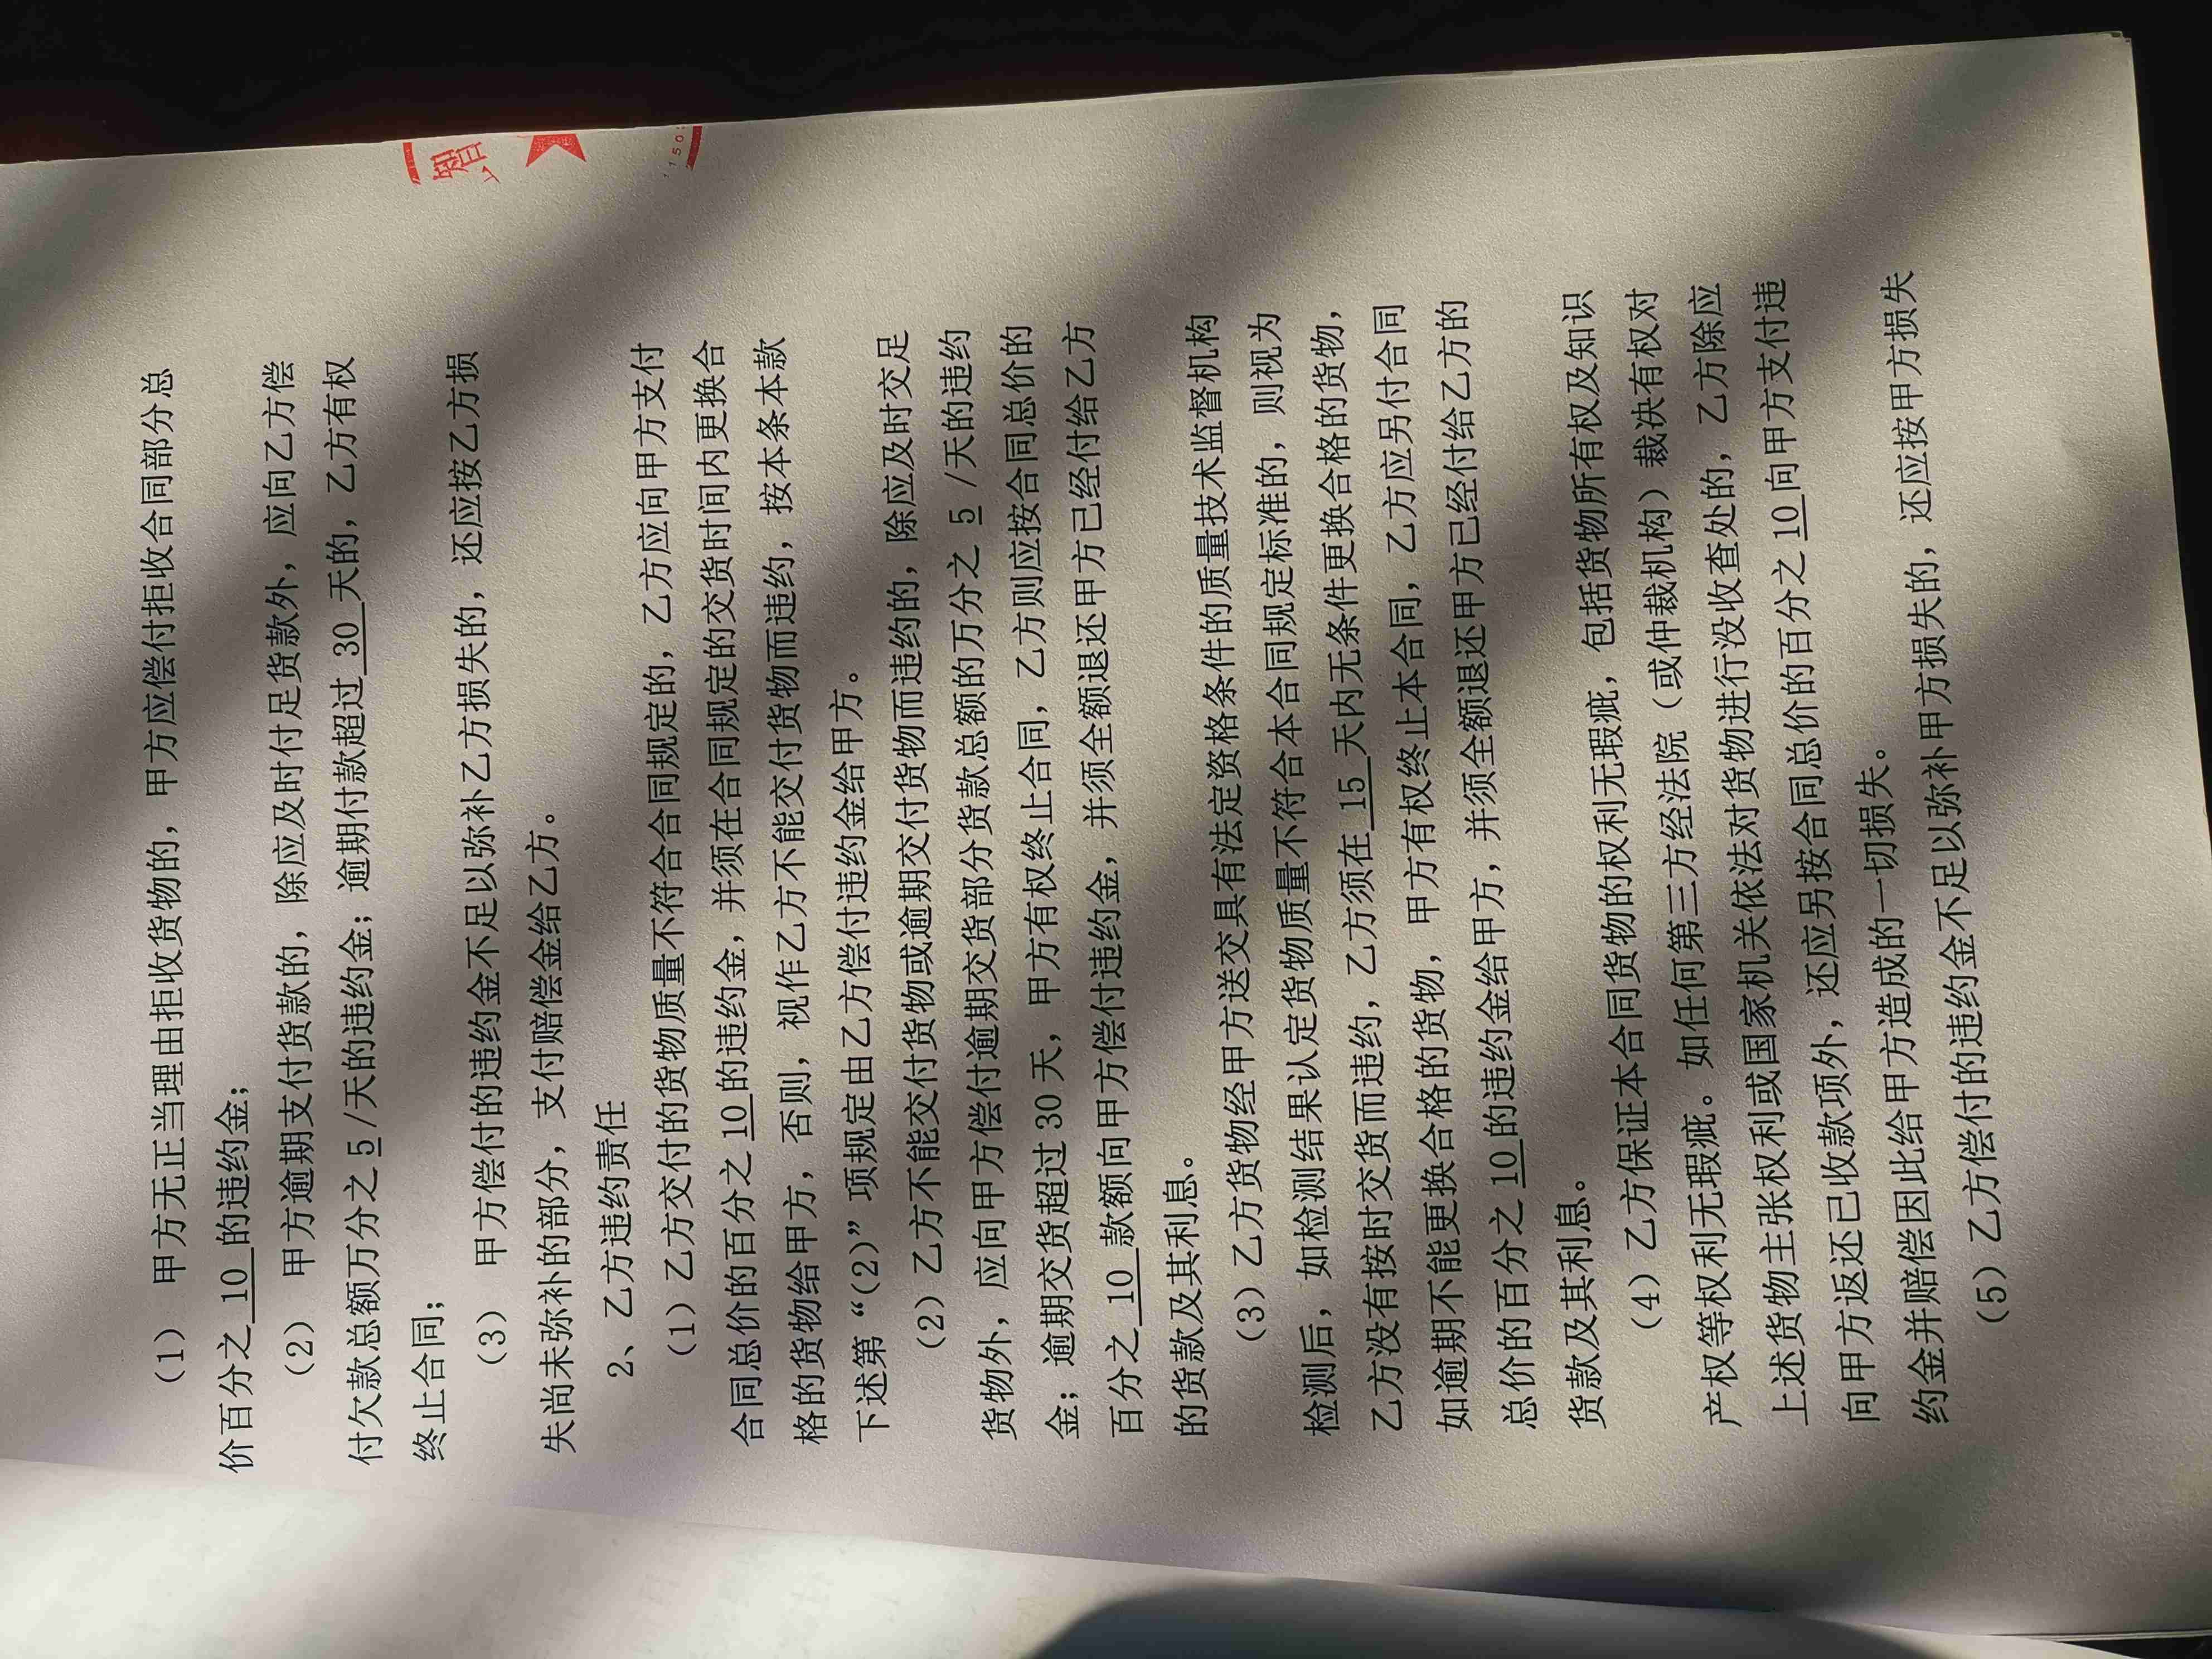 （1） 甲方无正当理由拒收货物的，甲方应偿付拒收合同部分总
价百分之 10 的违约金；
（2） 甲方逾期支付货款的，除应及时付足货款外，应向乙方偿
付欠款总额万分之 5 /天的违约金；逾期付款超过 30 天的，乙方有权
终止合同；
（3） 甲方偿付的违约金不足以弥补乙方损失的，还应按乙方损
失尚未弥补的部分，支付赔偿金给乙方。
2、乙方违约责任
（1）乙方交付的货物质量不符合合同规定的，乙方应向甲方支付
合同总价的百分之 10 的违约金，并须在合同规定的交货时间内更换合
格的货物给甲方，否则，视作乙方不能交付货物而违约，按本条本款
下述第“（2）”项规定由乙方偿付违约金给甲方。
（2）乙方不能交付货物或逾期交付货物而违约的，除应及时交足
货物外，应向甲方偿付逾期交货部分货款总额的万分之 5 /天的违约
金；逾期交货超过 30 天，甲方有权终止合同，乙方则应按合同总价的
百分之 10 款额向甲方偿付违约金，并须全额退还甲方已经付给乙方
的货款及其利息。
（3）乙方货物经甲方送交具有法定资格条件的质量技术监督机构
检测后，如检测结果认定货物质量不符合本合同规定标准的，则视为
乙方没有按时交货而违约，乙方须在 15 天内无条件更换合格的货物，
如逾期不能更换合格的货物，甲方有权终止本合同，乙方应另付合同
总价的百分之 10 的违约金给甲方，并须全额退还甲方已经付给乙方的
货款及其利息。
（4）乙方保证本合同货物的权利无瑕疵，包括货物所有权及知识
产权等权利无瑕疵。如任何第三方经法院（或仲裁机构）裁决有权对
上述货物主张权利或国家机关依法对货物进行没收查处的，乙方除应
向甲方返还已收款项外，还应另按合同总价的百分之 10 向甲方支付违
约金并赔偿因此给甲方造成的一切损失。
（5）乙方偿付的违约金不足以弥补甲方损失的，还应按甲方损失